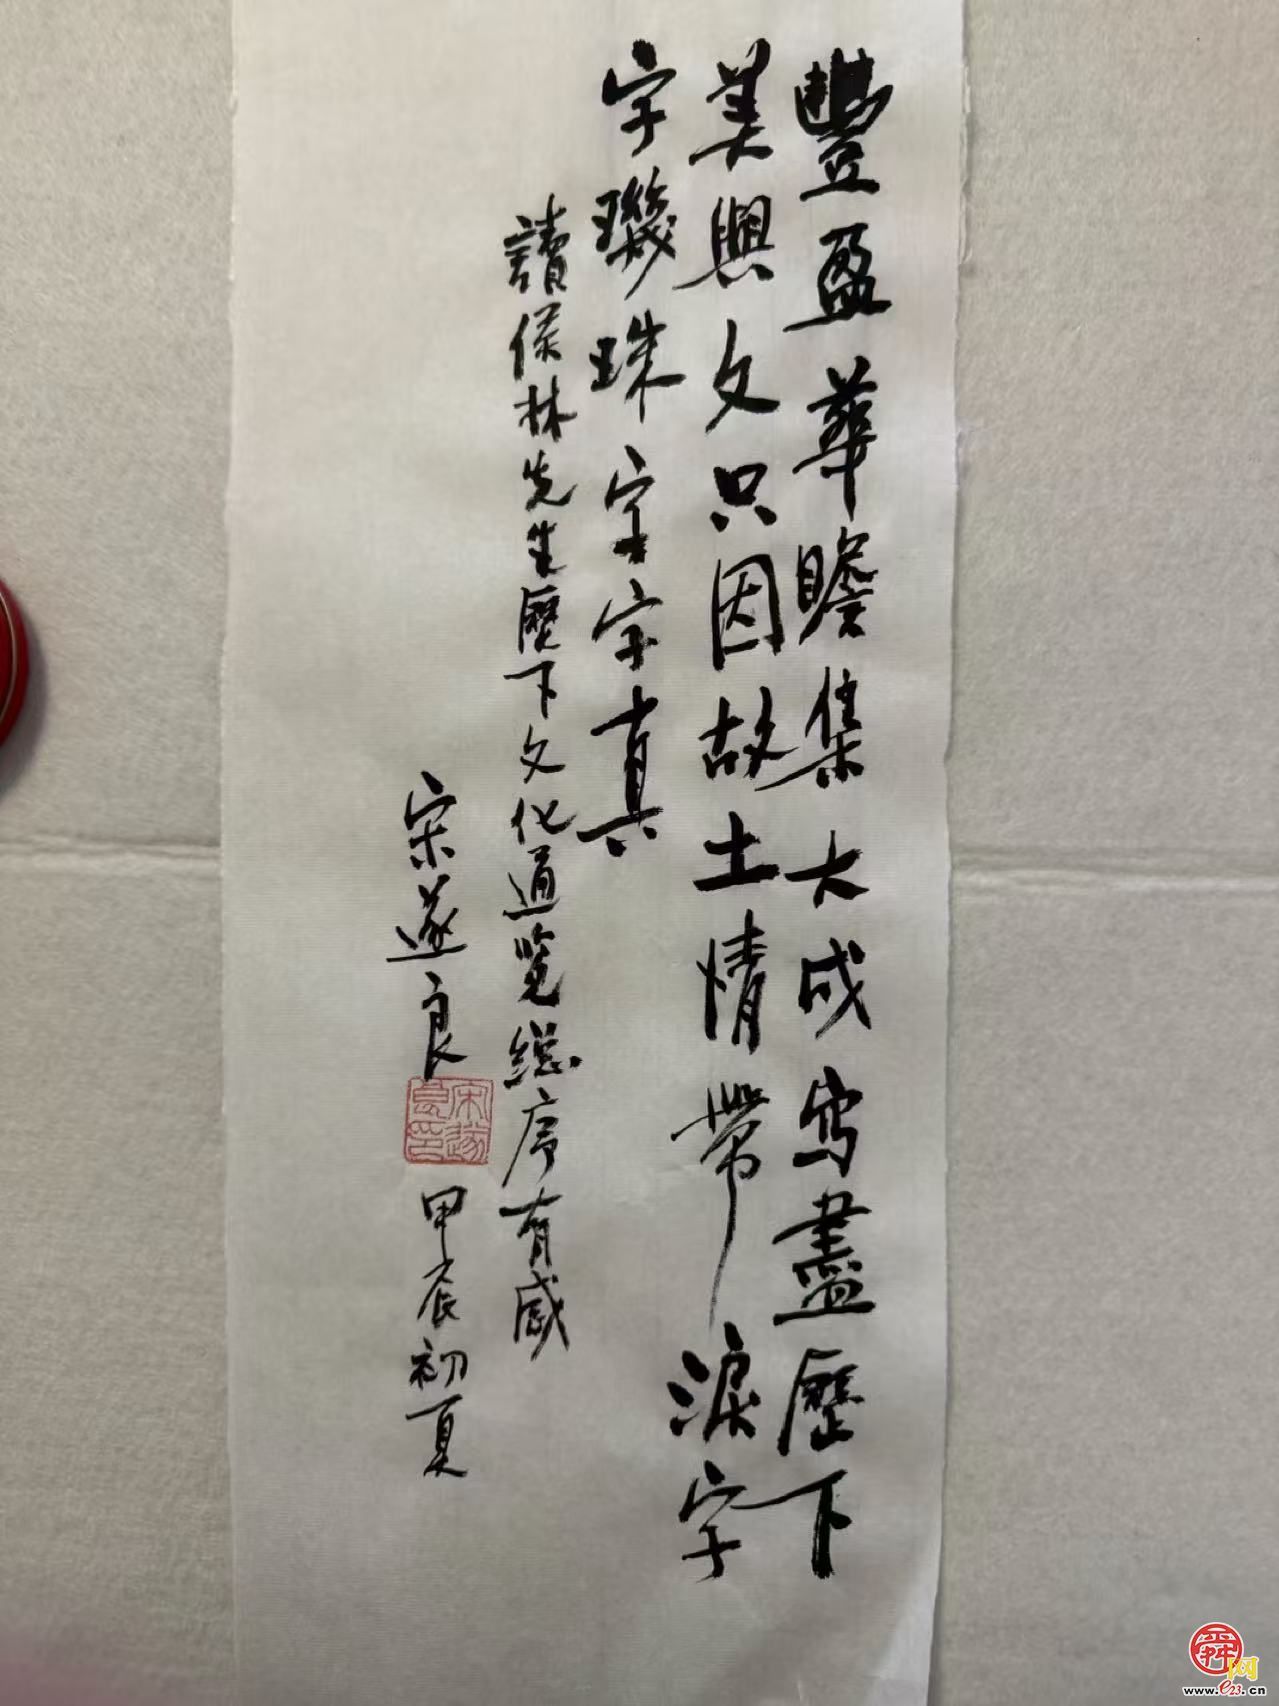 豐盈華贍集大成寫盡歷下
美與文只因故土情帶淚字
字璣珠字字真
讀侯林先生歷下文化通览総序有感
宋遂良
宋遂良印
甲辰初夏
舜网
www.e23.cn